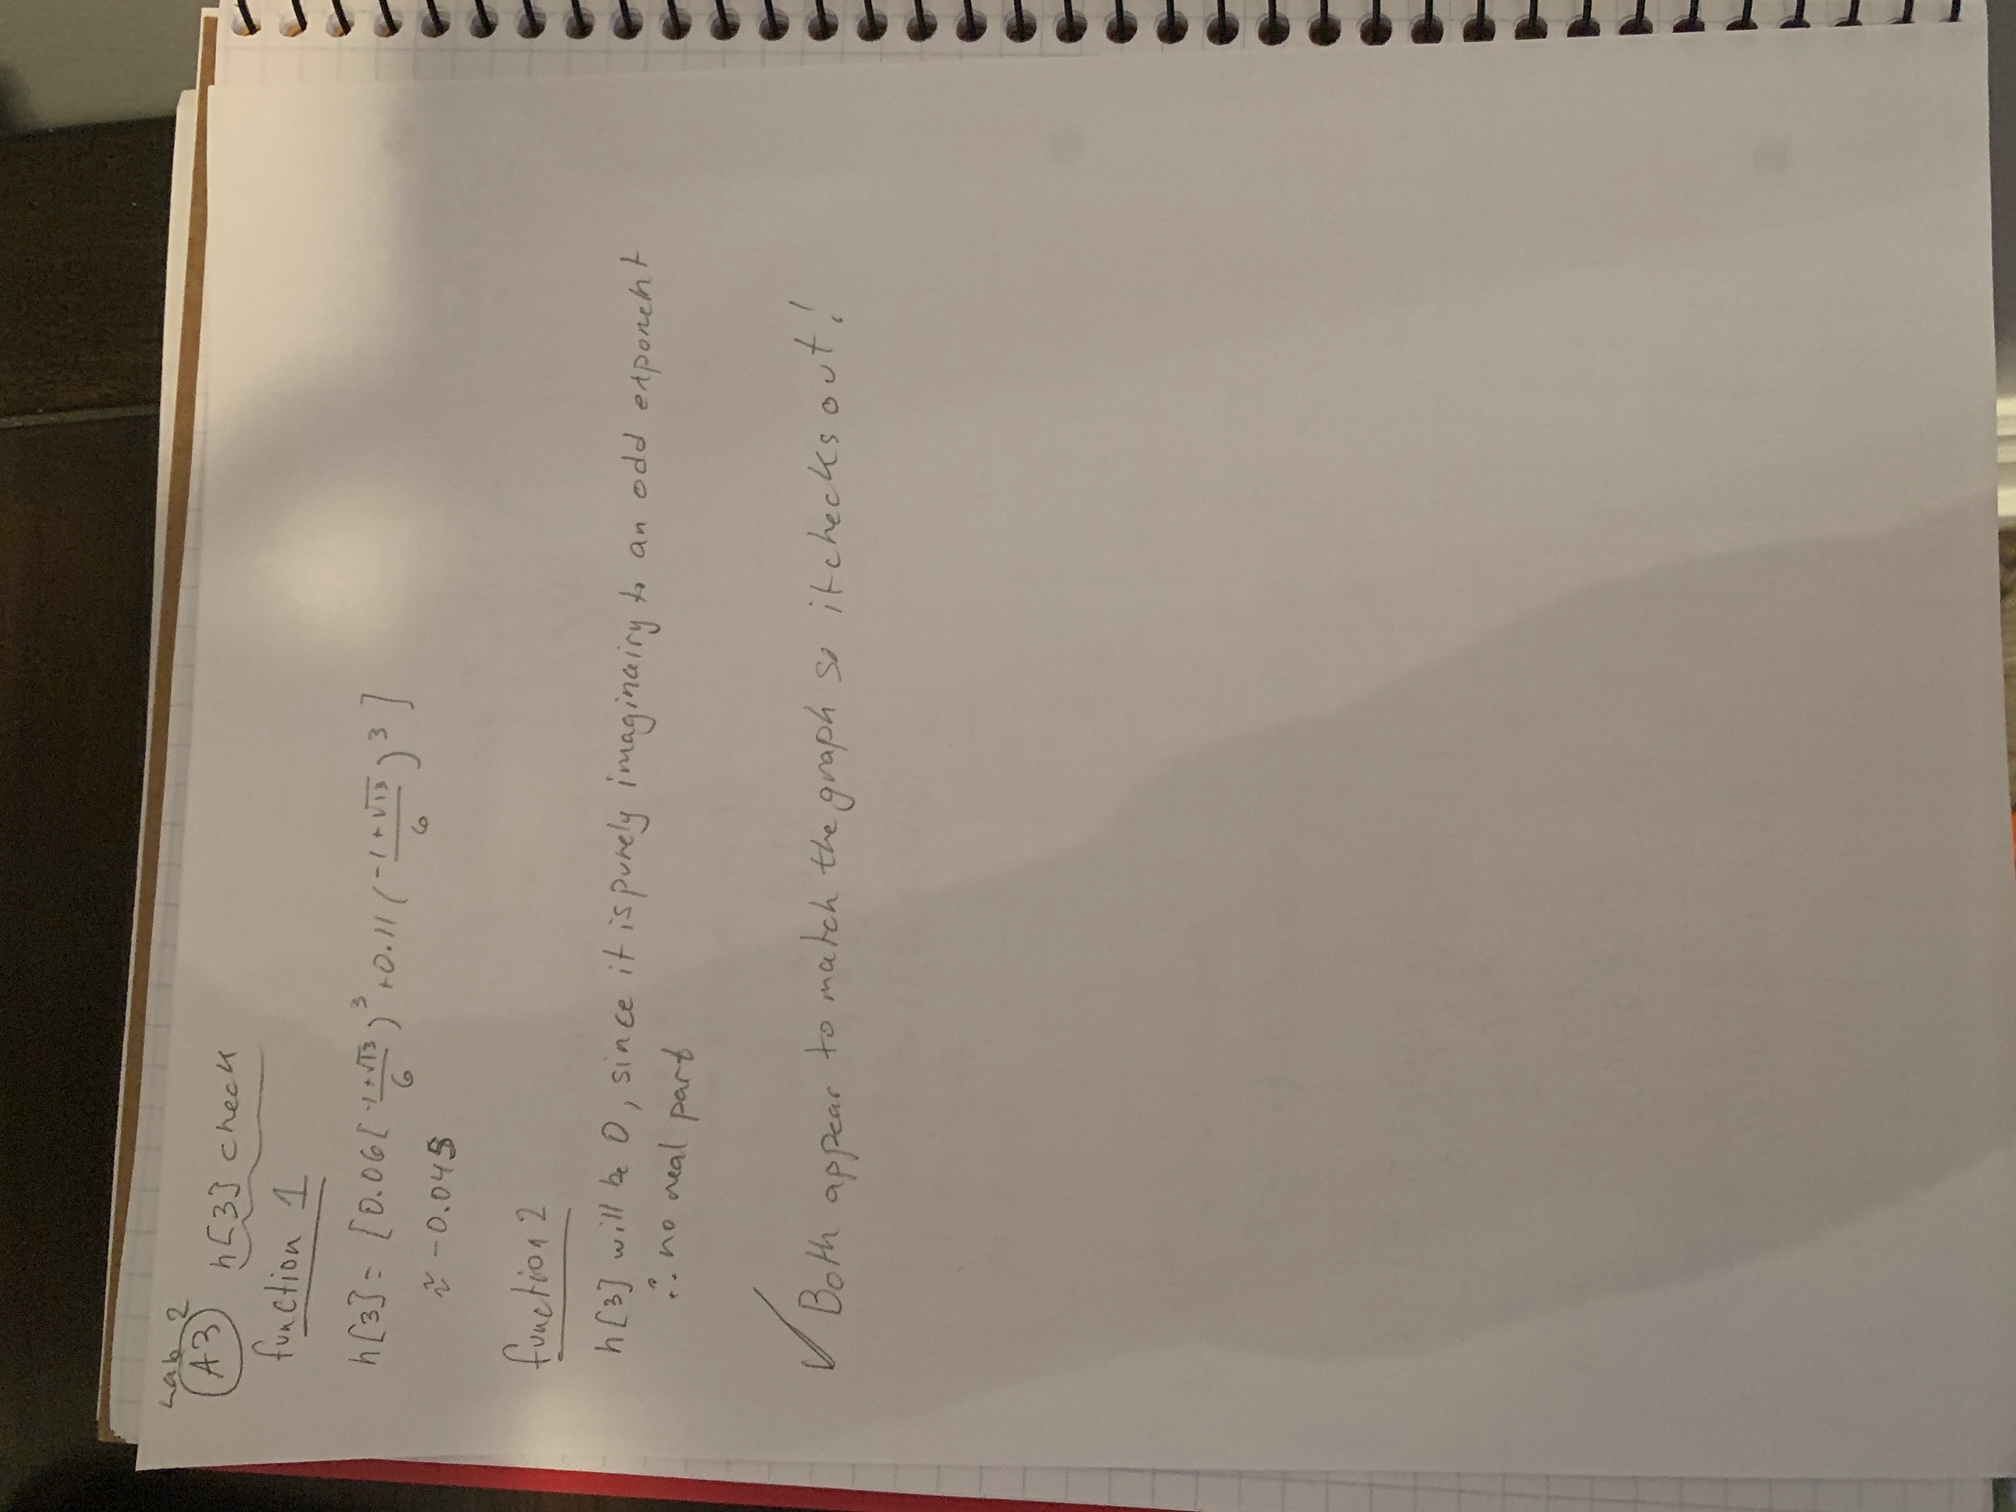 Lab 2
A3 h[3] check
function 1
h[3] = [0.06[ -1+√13 / 6 )³ +0.11 ( -1+√13 / 6 )³ ]
≈ -0.045
function 2
h[3] will be 0, since it is purely imaginairy to an odd exponent
∴ no real part
✓ Both appear to match the graph so it checks out!